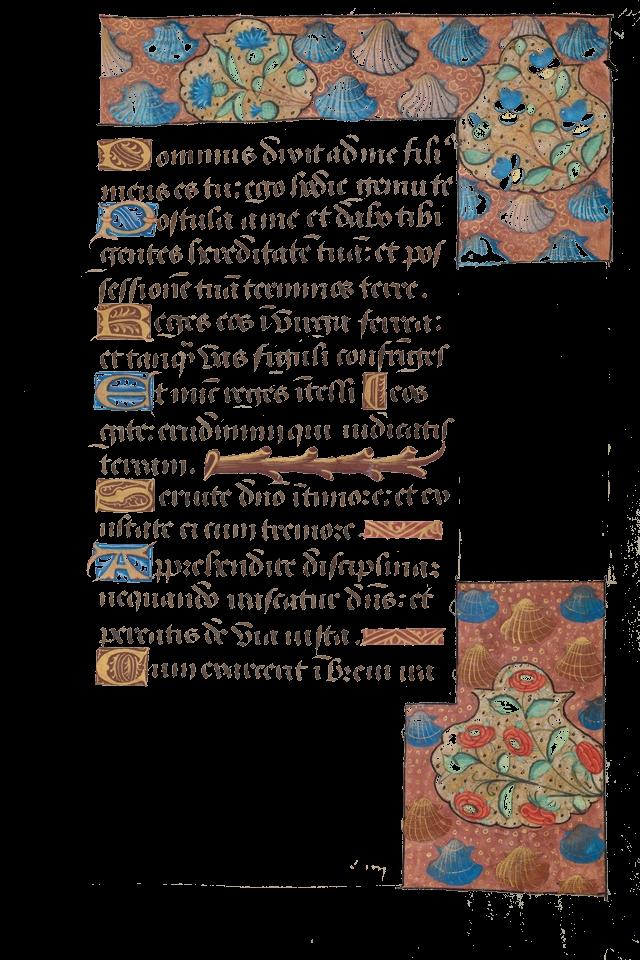 Dominus dixit ad me fili
meus es tu: ego hodie genui te
Postula a me et dabo tibi
gentes hereditatē tuā: et pos
sessionē tuā terminos terre.
Reges eos ī virga ferrea:
et tanq̄ vas figuli confringes
Et nunc reges ītelli eos
gite: erudimini qui iudicatis
terram.
Seruite dn̄o ī timore: et ex
ultate ei cum tremore.
Apprehendite disciplinā:
nequando irascatur dn̄s: et
pereatis de via iusta.
Cum exarserit ī breui